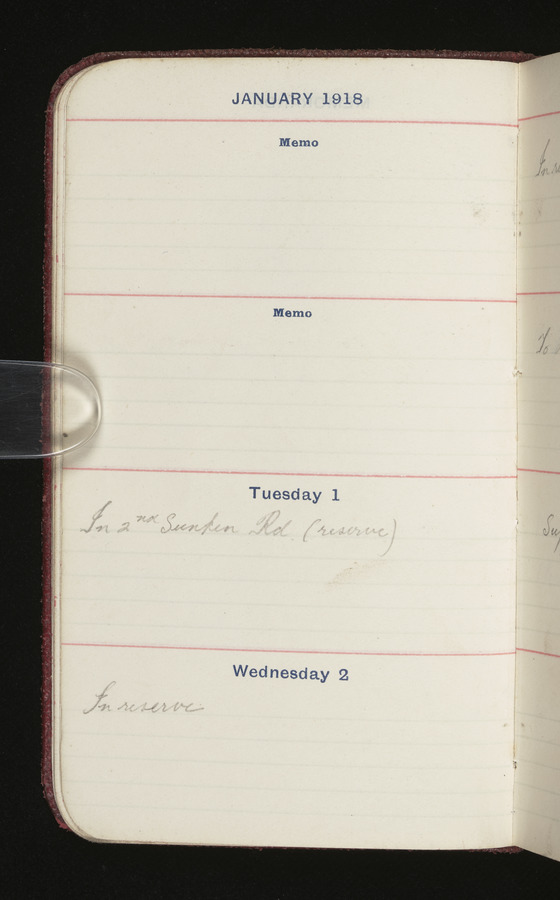 JANUARY 1918
Memo
Memo
Tuesday 1
In 2nd Sunken Rd. (reserve)
Wednesday 2
In reserve